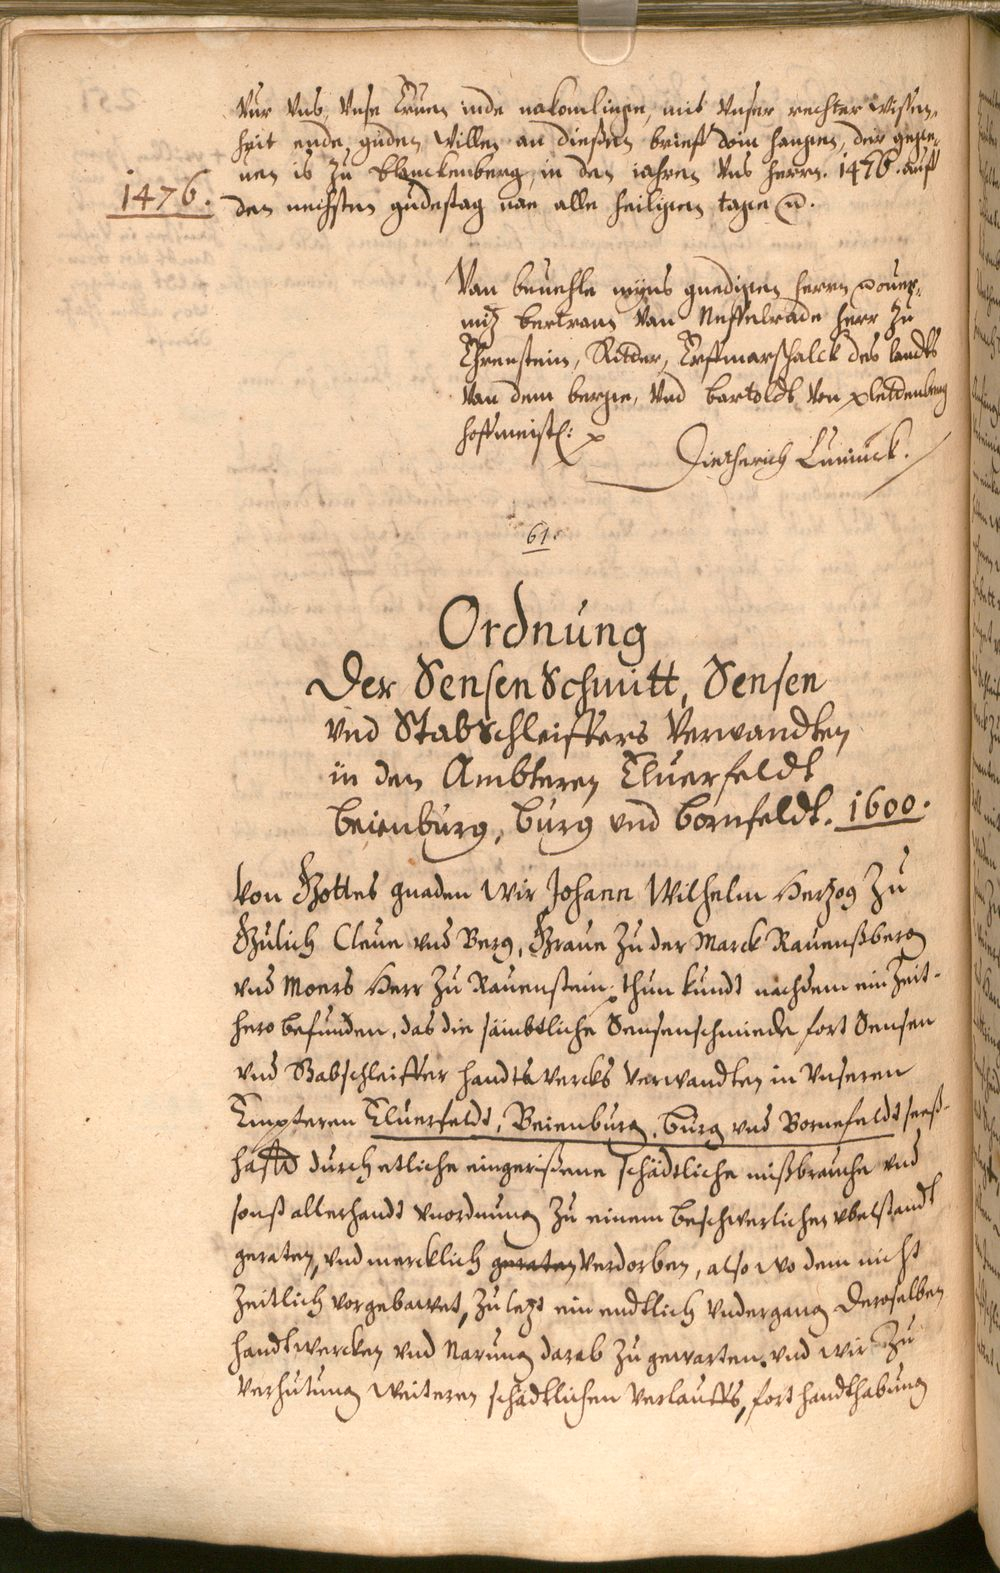 vur vns, vnse Eruen inde nakomlinge, mit vnser rechter wissen,
heit ende guden willen an diesen brieff doin hangen, der gege,
nen is zu Blanckenberg, in den iahren vns herrn. 1476. auff
1476.
den nechsten gudestag nae alle heiligen tage
Van beuehle myns gnedigen herrn ouer,
mitz bertram van Nesselrade herr zu
Ehrenstein, Ritder, Erffmarschalck des landts
van dem berge, vnd bartoldt von Plettenberg
hoffmeister:
Dietherich Luninck.
61.
Ordnung
Der Sensen Schmitt, Sensen
vnd Stabschleiffers Verwandten
in den Ambteren Eluerfeldt
beienburg, burg vnd bornfeldt. 1600.
Von Gottes gnaden Wir Johann Wilhelm Hertzog zu
Gülich Cleue vnd Berg, Graue zu der Marck Rauenßberg
vnd Moers Herr zu Rauenstein, thun kundt nachdem ein Zeit-
hero befunden, das die sämbtliche Sensenschmiede fort Sensen
vnd Stabschleiffer handtwercks verwandten in vnseren
Empteren Eluerfeldt, Beienburg, burg vnd Bornefeldt seeß-
hafft durch etliche eingerißene schädtliche mißbrauche vnd
sonst allerhandt vnordnung zu einem beschwerlichen vbelstandt
geraten, vnd mercklich geraten verdorben, also wo dem nicht
zeitlich vorgebawet, zu letzt ein endtlich vndergang deroselben
handtwercken vnd Narung darab zu gewarten, vnd wir zu
verhutung weiteren schädtlichen verlauffs, fort handthabung